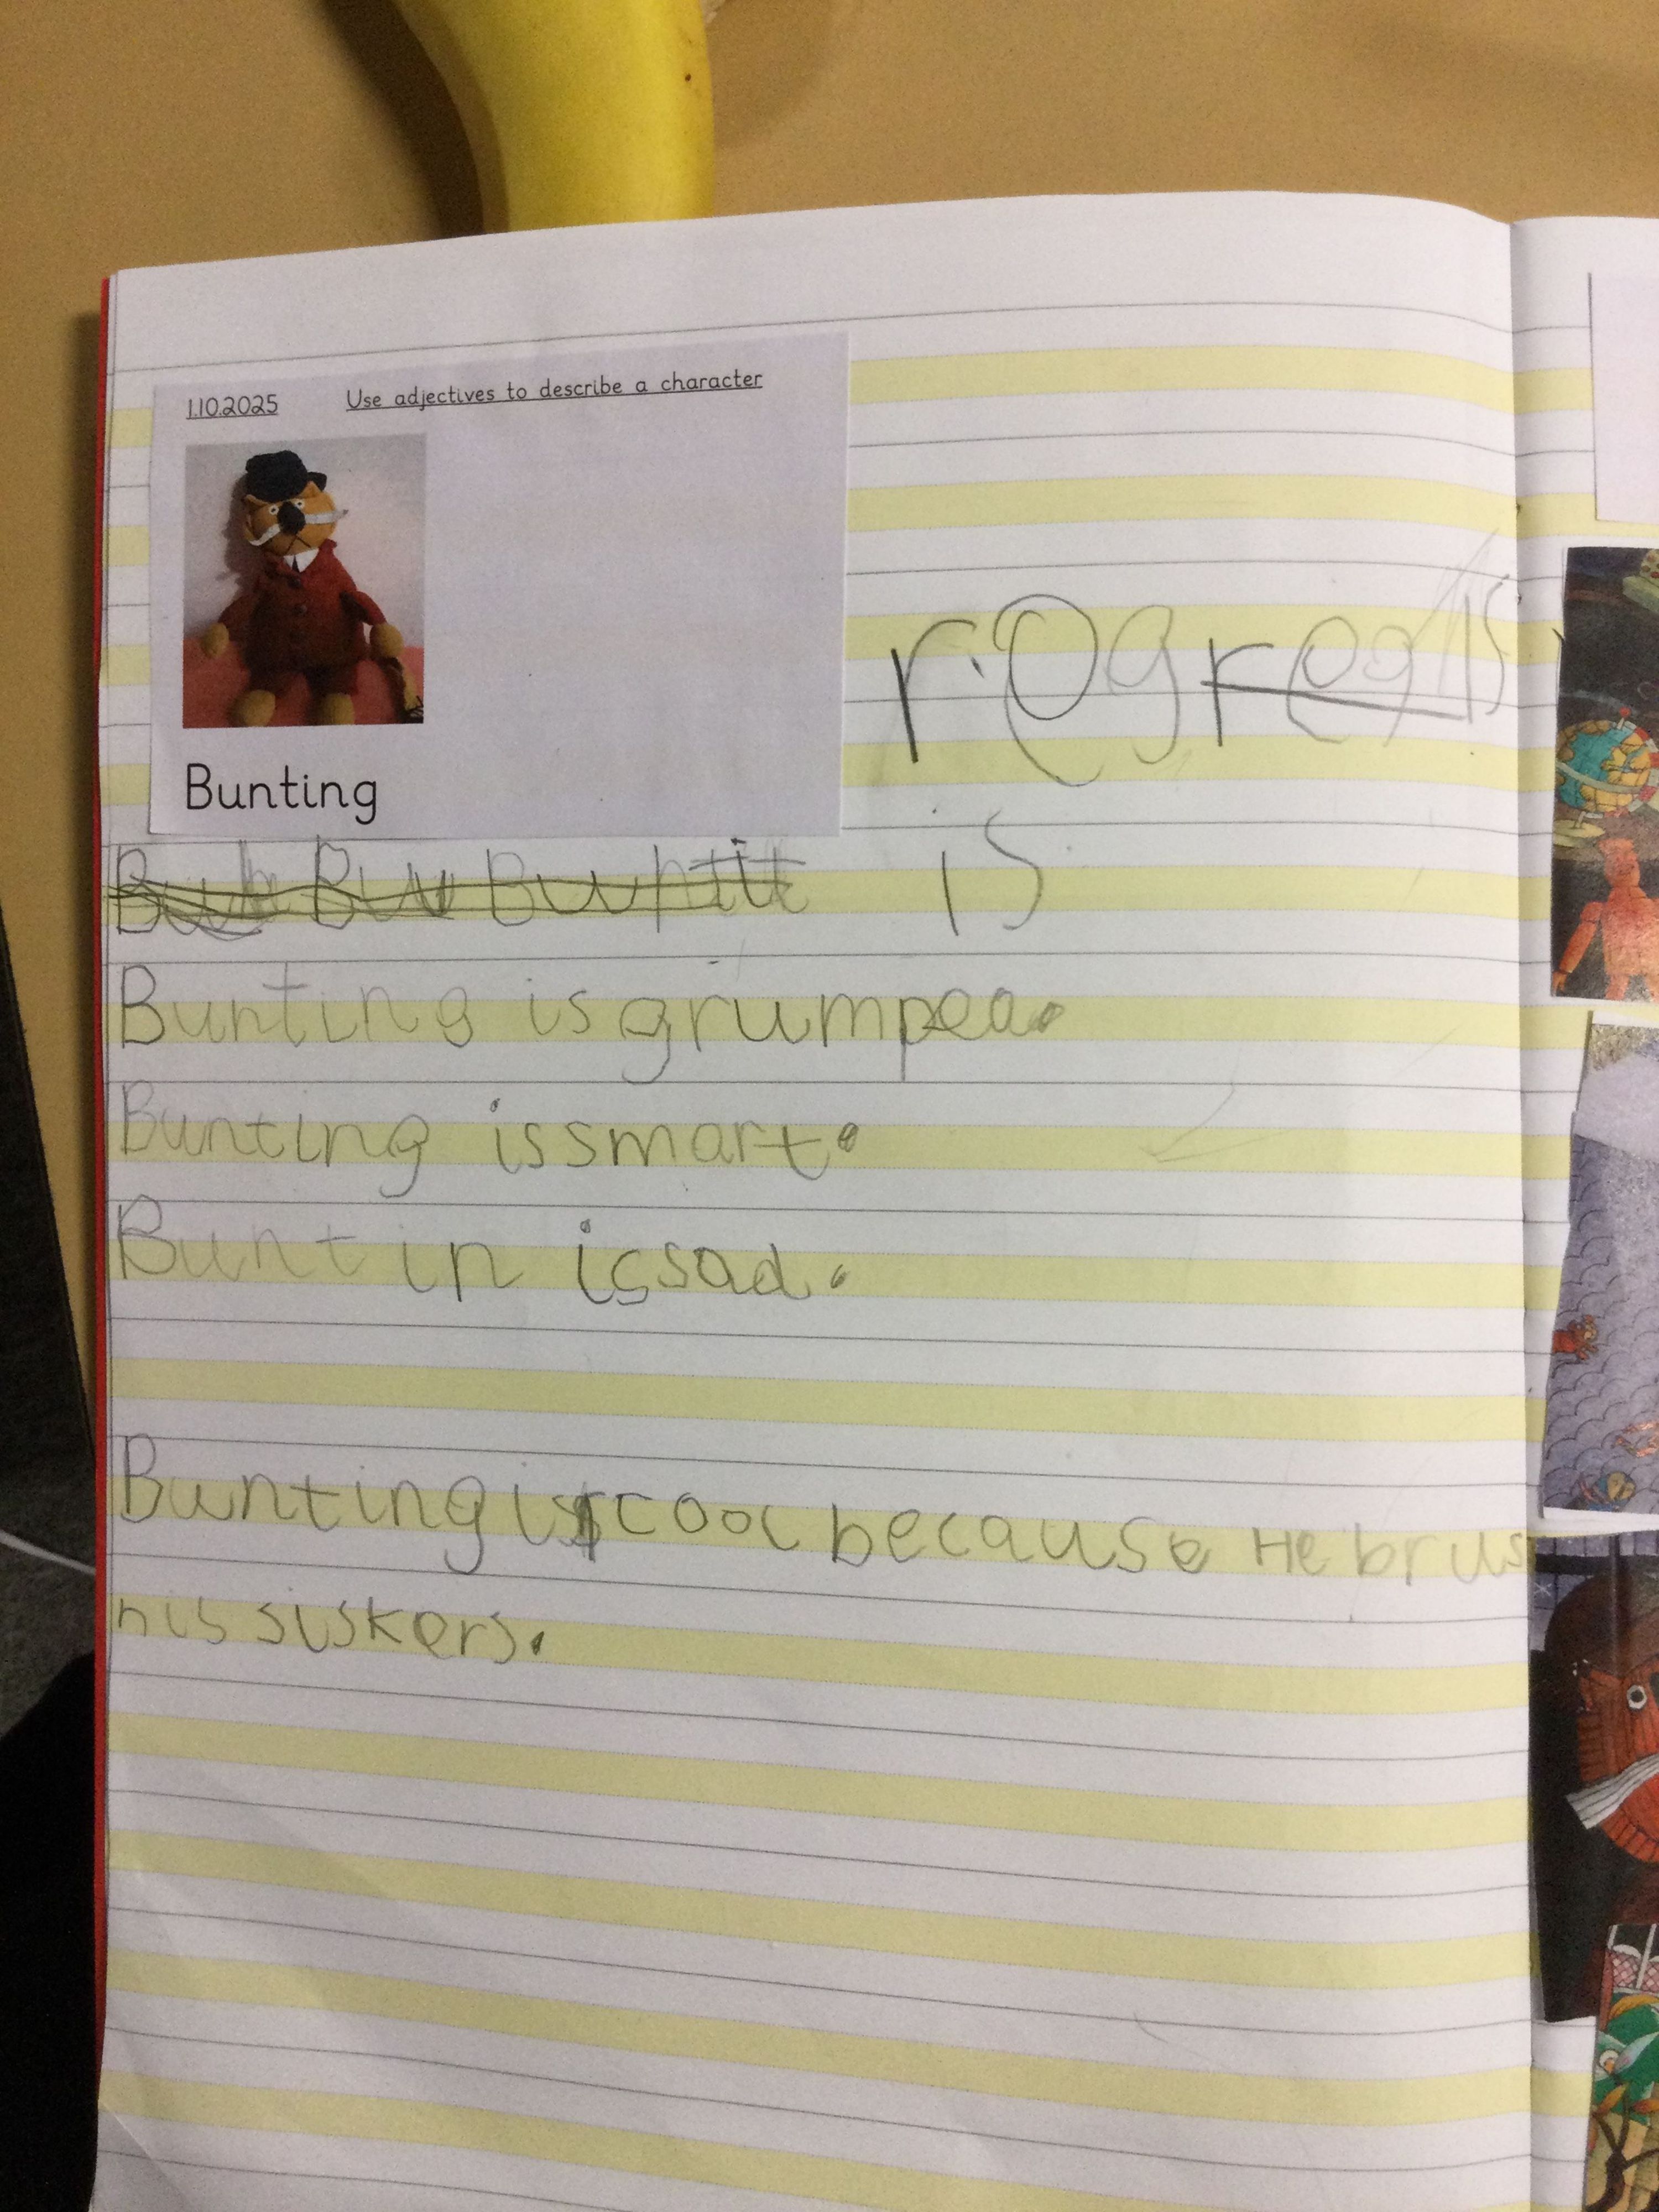 1.10.2025 Use adjectives to describe a character
Bunting
is
Bunting is grumpea.
Bunting is smart.
Buntin is sad.
Bunting is cool because He brus
his siskers.